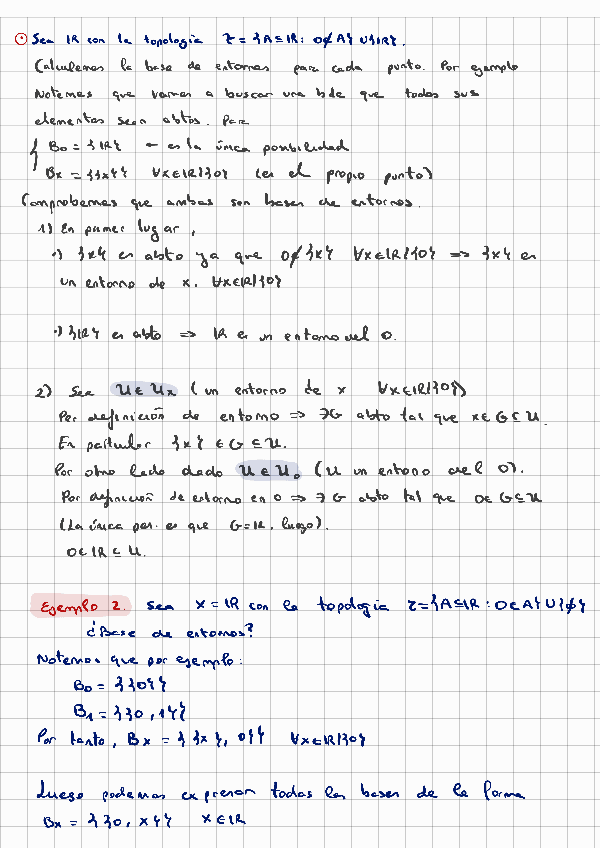 ⊙ Sea ℝ con la topología τ = {A ⊆ ℝ : 0 ∉ A} ∪ {ℝ}.
Calculemos la base de entornos para cada punto. Por ejemplo
Notemos que vamos a buscar una bde que todos sus
elementos sean abtos. Para
{ B₀ = {ℝ} ← es la única posibilidad
Bₓ = {{x}} ∀x∈ℝ\{0} (es el propio punto)
Comprobemos que ambas son bases de entornos.
1) En primer lugar,
·) {x} es abto ya que 0∉{x} ∀x∈ℝ\{0} => {x} es
un entorno de x, ∀x∈ℝ\{0}
·) {ℝ} es abto => ℝ es un entorno del 0.
2) Sea U ∈ Uₓ (un entorno de x ∀x∈ℝ\{0})
Por definición de entorno => ∃G abto tal que x∈G⊆U.
En particular {x} ∈ G ⊆ U.
Por otro lado dado U ∈ U₀ (U un entorno del 0).
Por definición de entorno en 0 => ∃ G abto tal que 0∈G⊆U
(La única pos. es que G=ℝ, luego).
0∈ℝ ⊆ U.
Ejemplo 2. Sea X = ℝ con la topología τ={A⊆ℝ : 0∈A} ∪ {∅}
¿Base de entornos?
Notemos que por ejemplo:
B₀ = {{0}}
B₁ = {{0, 1}}
Por tanto, Bₓ = {{x}, 0}} ∀x∈ℝ\{0}
Luego podemos expresar todas las bases de la forma
Bₓ = {{0, x}} x∈ℝ